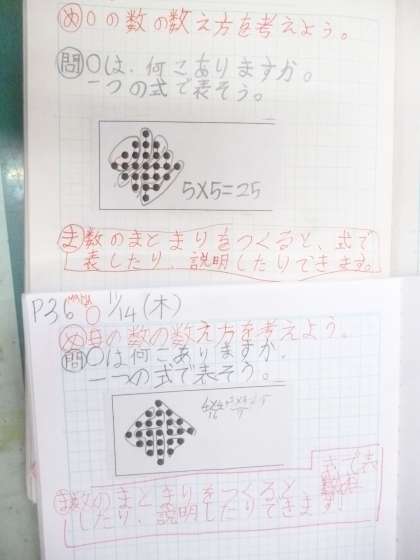 め ○の数の数え方を考えよう。
問 ○は、何こありますか。
一つの式で表そう。
5×5=25
ま 数のまとまりをつくると、式で
表したり、説明したりできます。
P36 11/14(木)
め ○の数の数え方を考えよう。
問 ○は何こありますか。
一つの式で表そう。
ま 数のまとまりをつくると 式で表
したり、説明したりできます